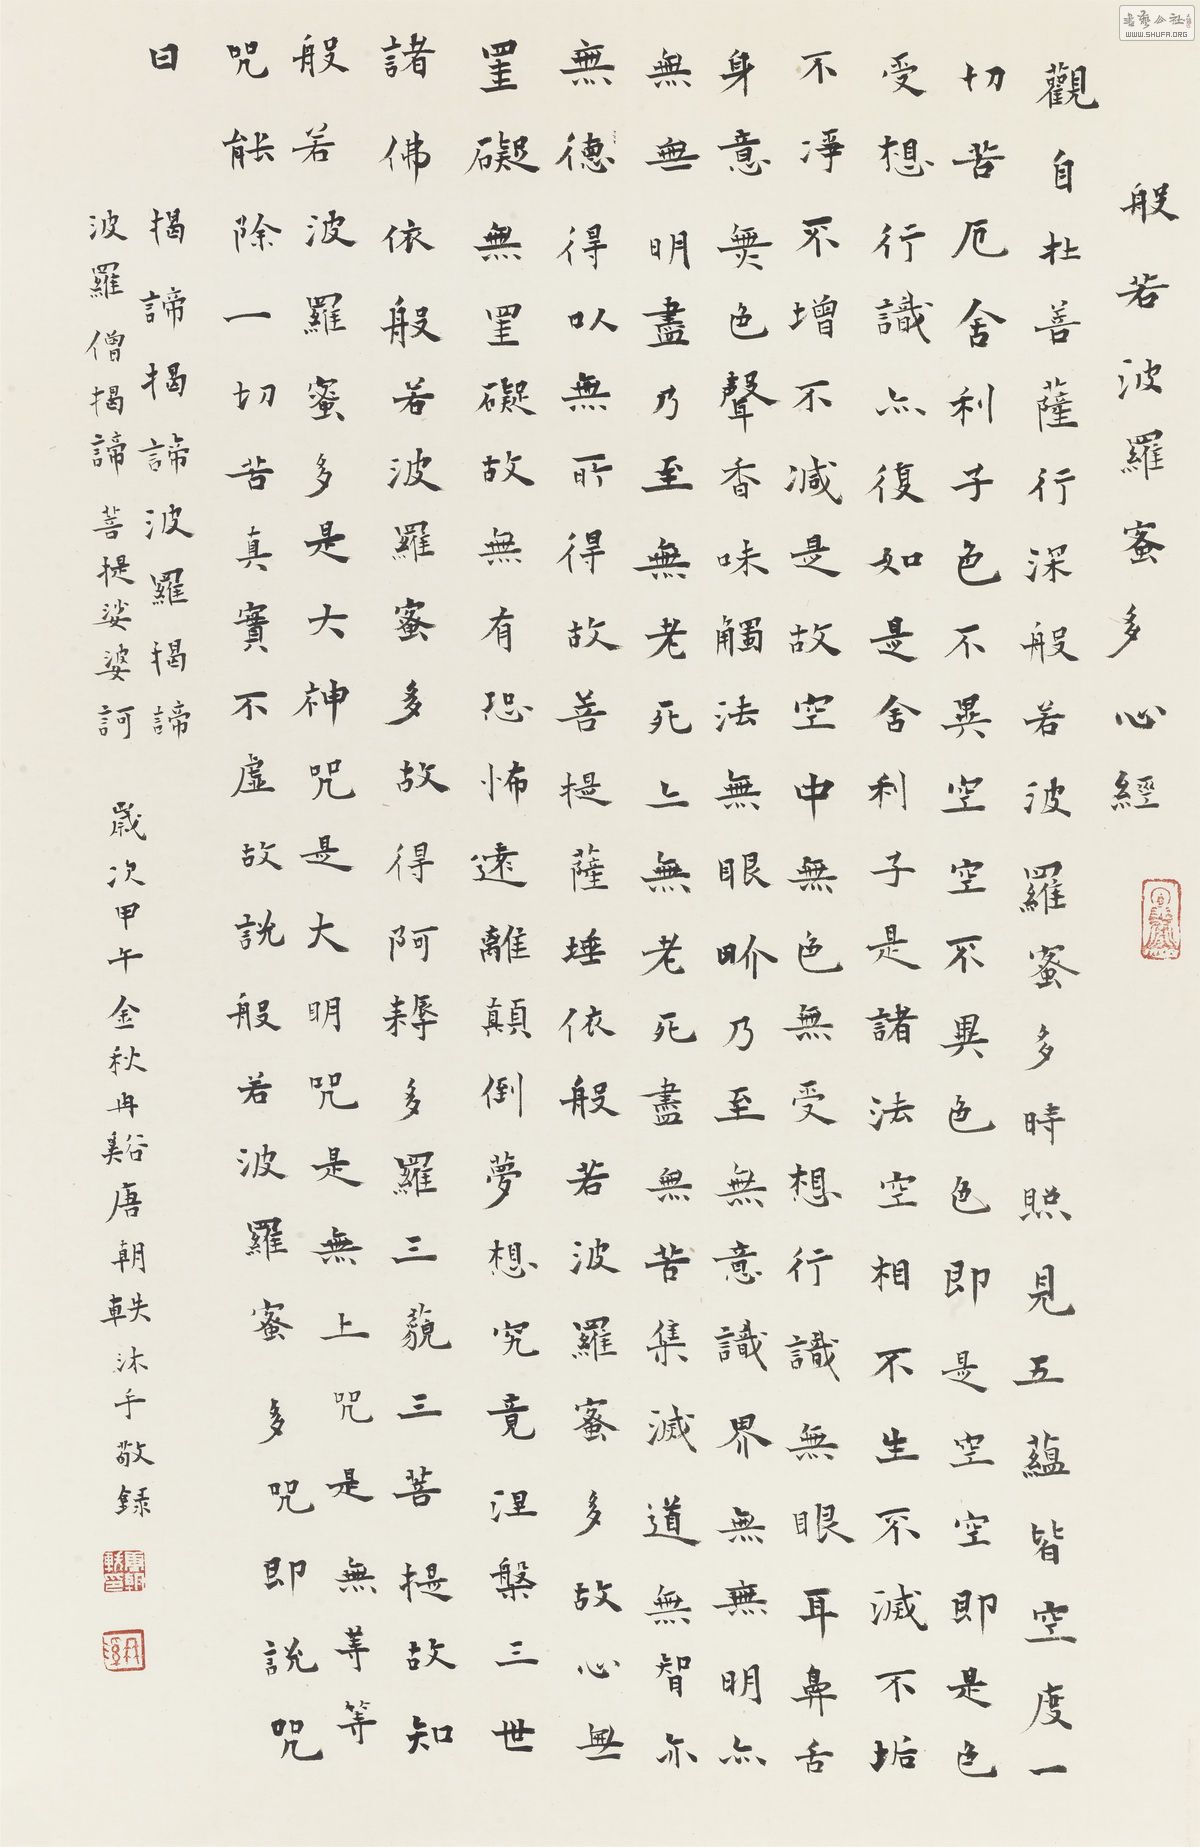 書藝公社
WWW.SHUFA.ORG
般若波羅蜜多心經
觀自在菩薩行深般若波羅蜜多時照見五蘊皆空度一
切苦厄舍利子色不異空空不異色色即是空空即是色
受想行識亦復如是舍利子是諸法空相不生不滅不垢
不淨不增不減是故空中無色無受想行識無眼耳鼻舌
身意無色聲香味觸法無眼界乃至無意識界無無明亦
無無明盡乃至無老死亦無老死盡無苦集滅道無智亦
無德得以無所得故菩提薩埵依般若波羅蜜多故心無
罣礙無罣礙故無有恐怖遠離顛倒夢想究竟涅槃三世
諸佛依般若波羅蜜多故得阿耨多羅三藐三菩提故知
般若波羅蜜多是大神咒是大明咒是無上咒是無等等
咒能除一切苦真實不虛故說般若波羅蜜多咒即說咒
曰 揭諦揭諦波羅揭諦
波羅僧揭諦菩提娑婆訶
歲次甲午金秋冉谿唐朝軼沐手敬錄
唐朝軼印